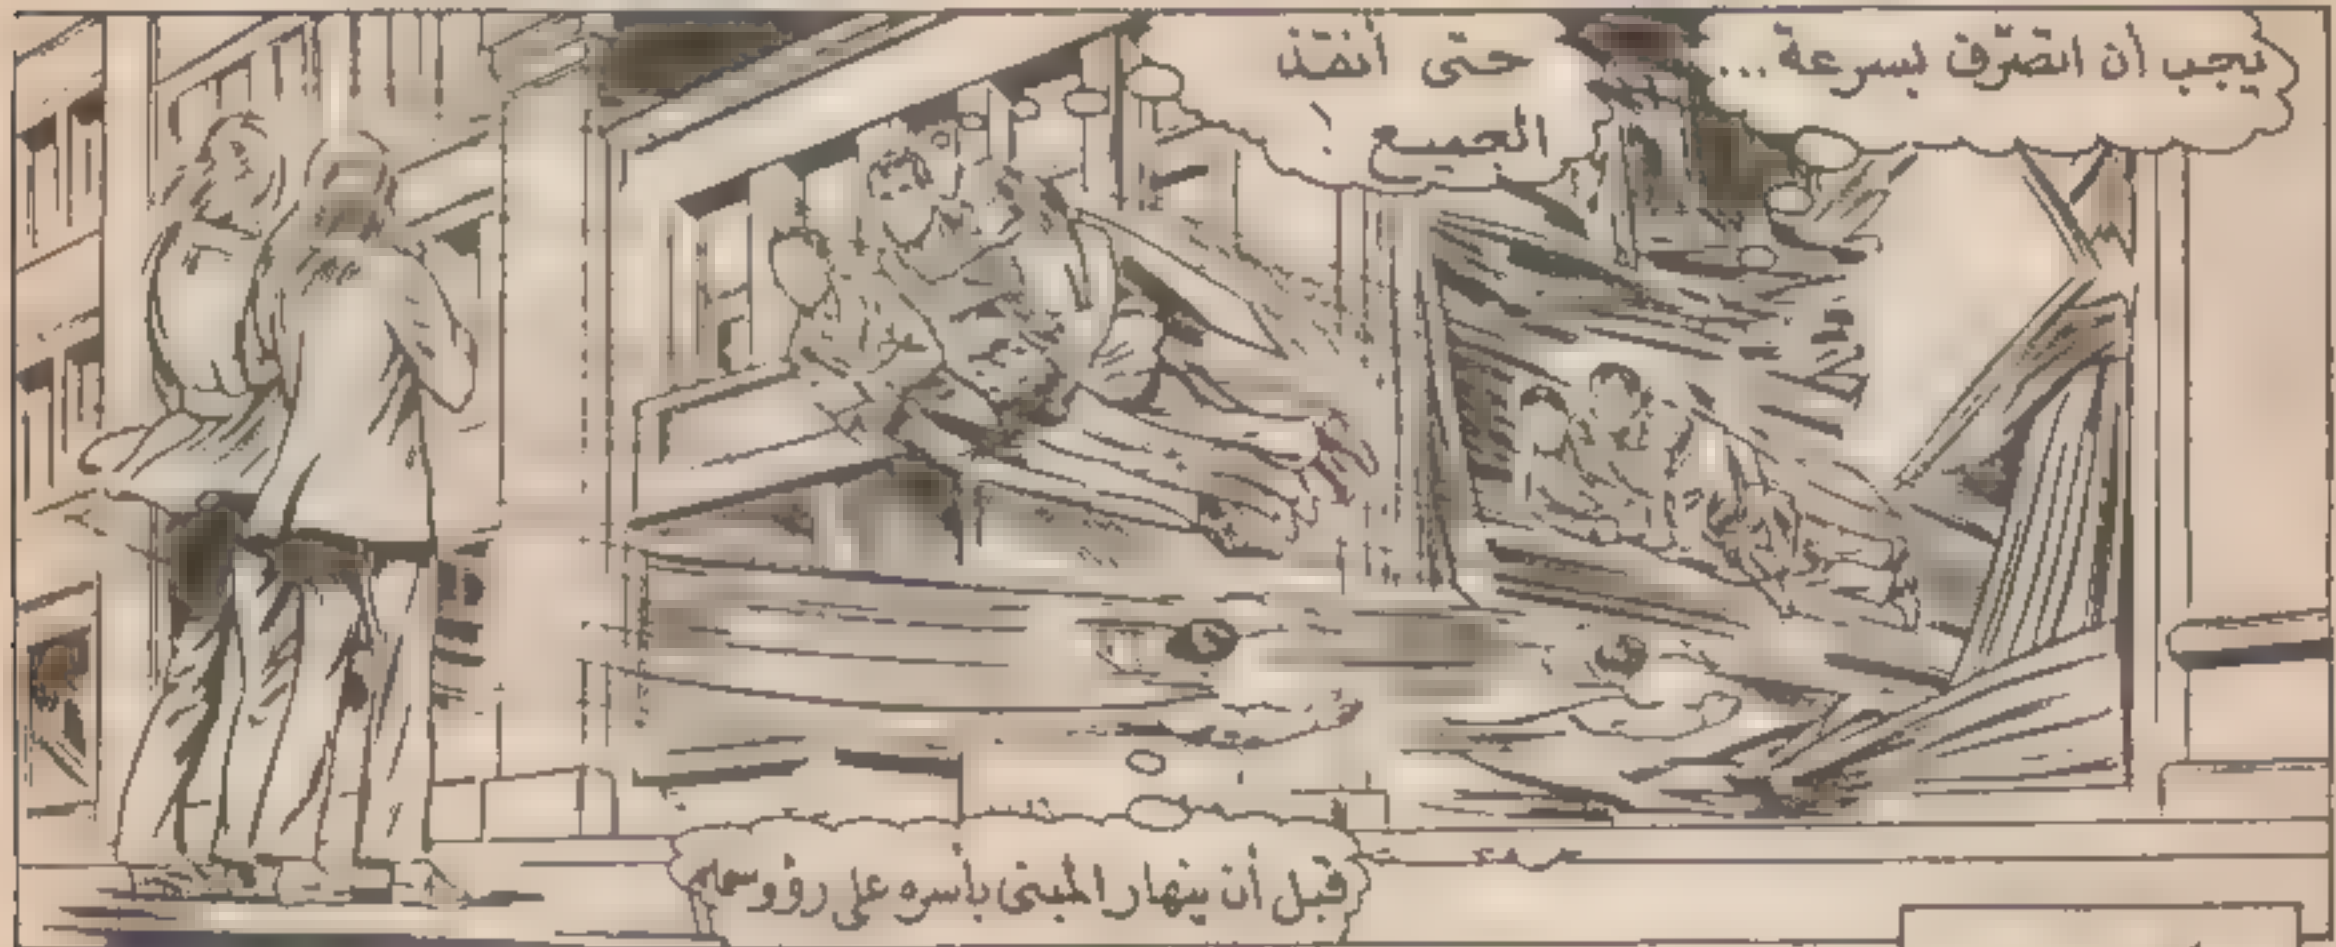 يجب أن اتصرّف بسرعة...
حتى أنقذ
الجميع !
قبل أن ينهار المبنى بأسره على رؤوسهم